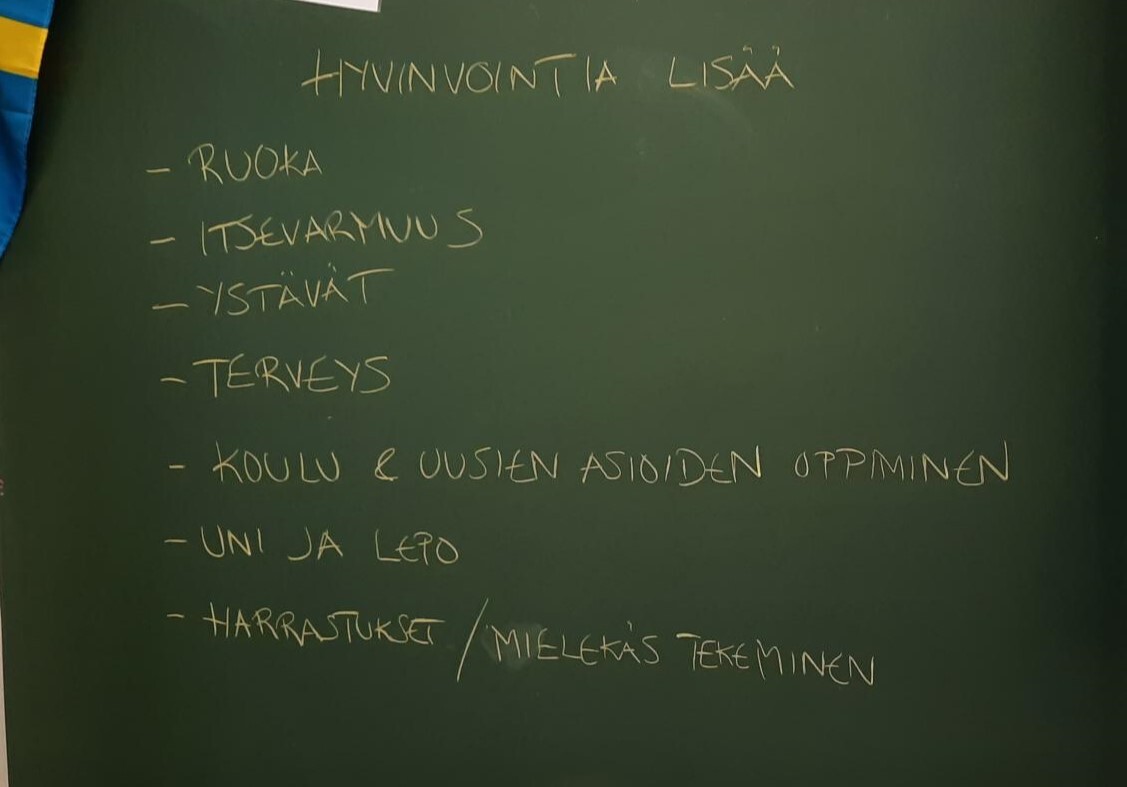 HYVINVOINTIA LISÄÄ
- RUOKA
- ITSEVARMUUS
- YSTÄVÄT
- TERVEYS
- KOULU & UUSIEN ASIOIDEN OPPIMINEN
- UNI JA LEPO
- HARRASTUKSET / MIELEKÄS TEKEMINEN